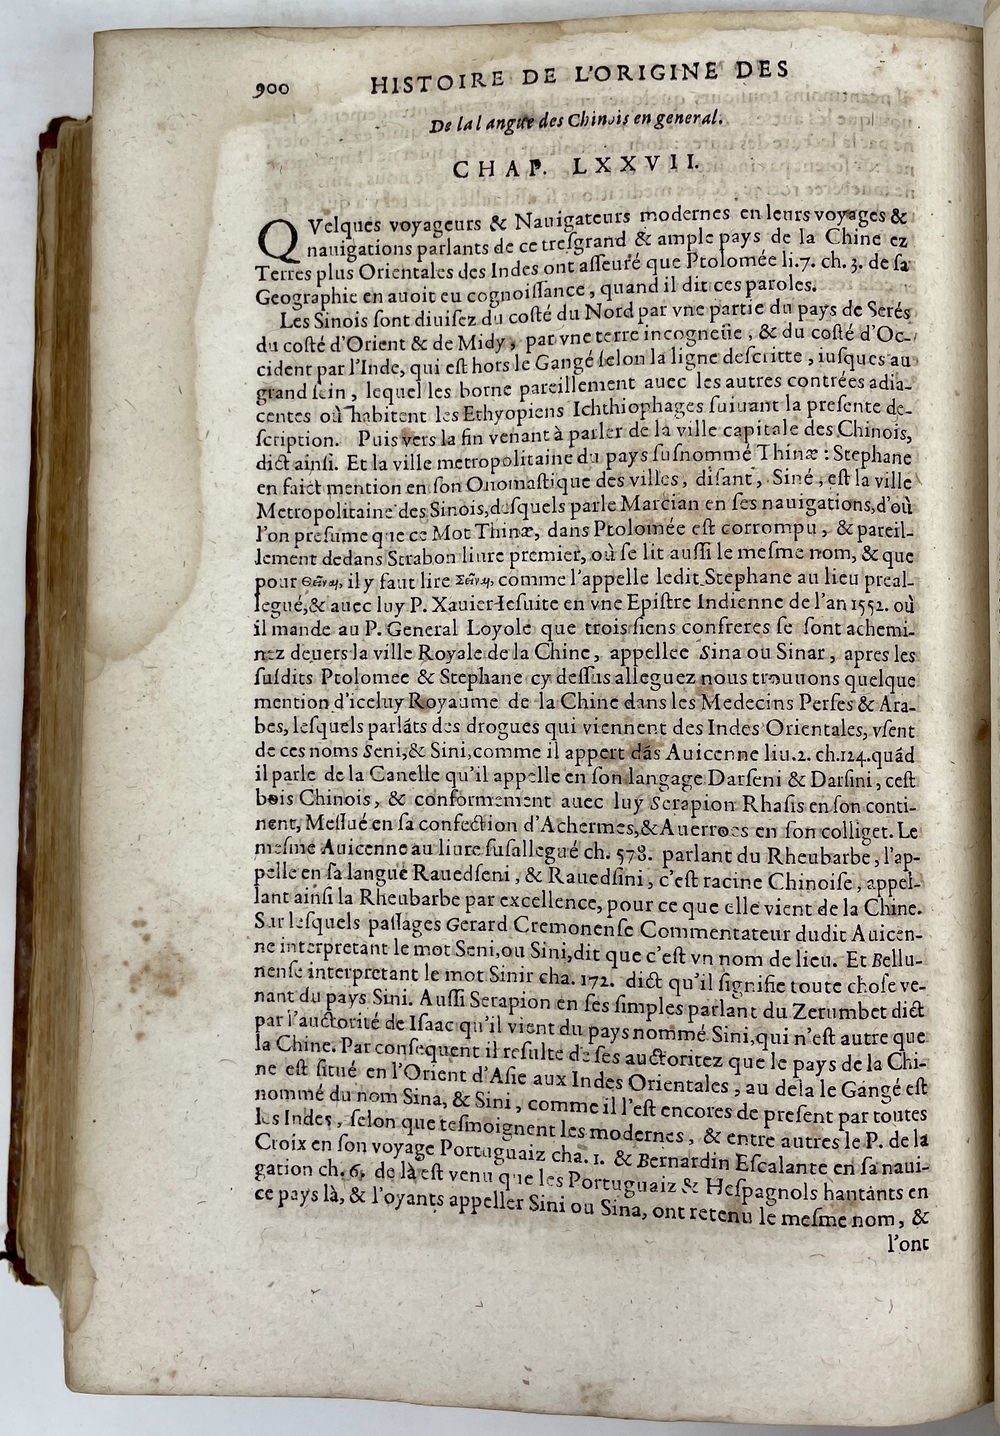 900 HISTOIRE DE L'ORIGINE DES
De la langue des Chinois en general.
CHAP. LXXVII.
QVelques voyageurs & Nauigateurs modernes en leurs voyages &
nauigations parlants de ce treſgrand & ample pays de la Chine ez
Terres plus Orientales des Indes ont aſſeuré que Ptolomée li.7. ch. 3. de ſa
Geographie en auoit eu cognoiſſance, quand il dit ces paroles.
Les Sinois ſont diuiſez du coſté du Nord par vne partie du pays de Serés
du coſté d'Orient & de Midy, par vne terre incogneüe, & du coſté d'Oc-
cident par l'Inde, qui eſt hors le Gangé ſelon la ligne deſcritte, iuſques au
grand ſein, lequel les borne pareillement auec les autres contrées adia-
centes où habitent les Ethyopiens Ichthiophages ſuiuant la preſente de-
ſcription. Puis vers la fin venant à parler de la ville capitale des Chinois,
dict ainſi. Et la ville metropolitaine du pays ſuſnommé Thinæ : Stephane
en faict mention en ſon Onomaſtique des villes, diſant, Siné, eſt la ville
Metropolitaine des Sinois, deſquels parle Marcian en ſes nauigations, d'où
l'on preſume que ce Mot Thinæ, dans Ptolomée eſt corrompu, & pareil-
lement dedans Strabon liure premier, où ſe lit auſſi le meſme nom, & que
pour il y faut lire comme l'appelle ledit Stephane au lieu preal-
legué, & auec luy P. Xauier Ieſuite en vne Epiſtre Indienne de l'an 1552. où
il mande au P. General Loyole que trois ſiens confreres ſe ſont achemi-
nez deuers la ville Royale de la Chine, appellee Sina ou Sinar, apres les
ſuſdits Ptolomee & Stephane cy deſſus alleguez nous trouuons quelque
mention d'iceluy Royaume de la Chine dans les Medecins Perſes & Ara-
bes, leſquels parlãts des drogues qui viennent des Indes Orientales, vſent
de ces noms Seni, & Sini, comme il appert dãs Auicenne liu.2. ch.124. quãd
il parle de la Canelle qu'il appelle en ſon langage Darſeni & Darſini, ceſt
bois Chinois, & conformement auec luy Serapion Rhaſis en ſon conti-
nent, Meſſué en ſa confection d'Achermes, & Auerroes en ſon colliget. Le
meſme Auicenne au liure ſuſallegué ch. 578. parlant du Rheubarbe, l'ap-
pelle en ſa langue Rauedſeni, & Rauedſini, c'eſt racine Chinoiſe, appel-
lant ainſi la Rheubarbe par excellence, pour ce que elle vient de la Chine.
Sur leſquels paſſages Gerard Cremonenſe Commentateur dudit Auicen-
ne interpretant le mot Seni, ou Sini, dit que c'eſt vn nom de lieu. Et Bellu-
nenſe interpretant le mot Sinir cha. 172. dict qu'il ſignifie toute choſe ve-
nant du pays Sini. Auſſi Serapion en ſes ſimples parlant du Zerumbet dict
par l'auctorité de Iſaac qu'il vient du pays nommé Sini, qui n'eſt autre que
la Chine. Par conſequent il reſulte de ſes auctoritez que le pays de la Chi-
ne eſt ſitué en l'Orient d'Aſie aux Indes Orientales, au dela le Gangé eſt
nommé du nom Sina, & Sini, comme il l'eſt encores de preſent par toutes
les Indes, ſelon que teſmoignent les modernes, & entre autres le P. de la
Croix en ſon voyage Portuguaiz cha. 1. & Bernardin Eſcalante en ſa naui-
gation ch. 6. de là eſt venu que les Portuguaiz & Heſpagnols hantants en
ce pays là, & l'oyants appeller Sini ou Sina, ont retenu le meſme nom, &
l'ont